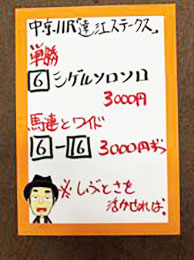 中京11R「遠江ステークス」
単勝
6 シゲルソロソロ
3000円
馬連とワイド
6-16 3000円ずつ
※しぶとさを
活かせれば。